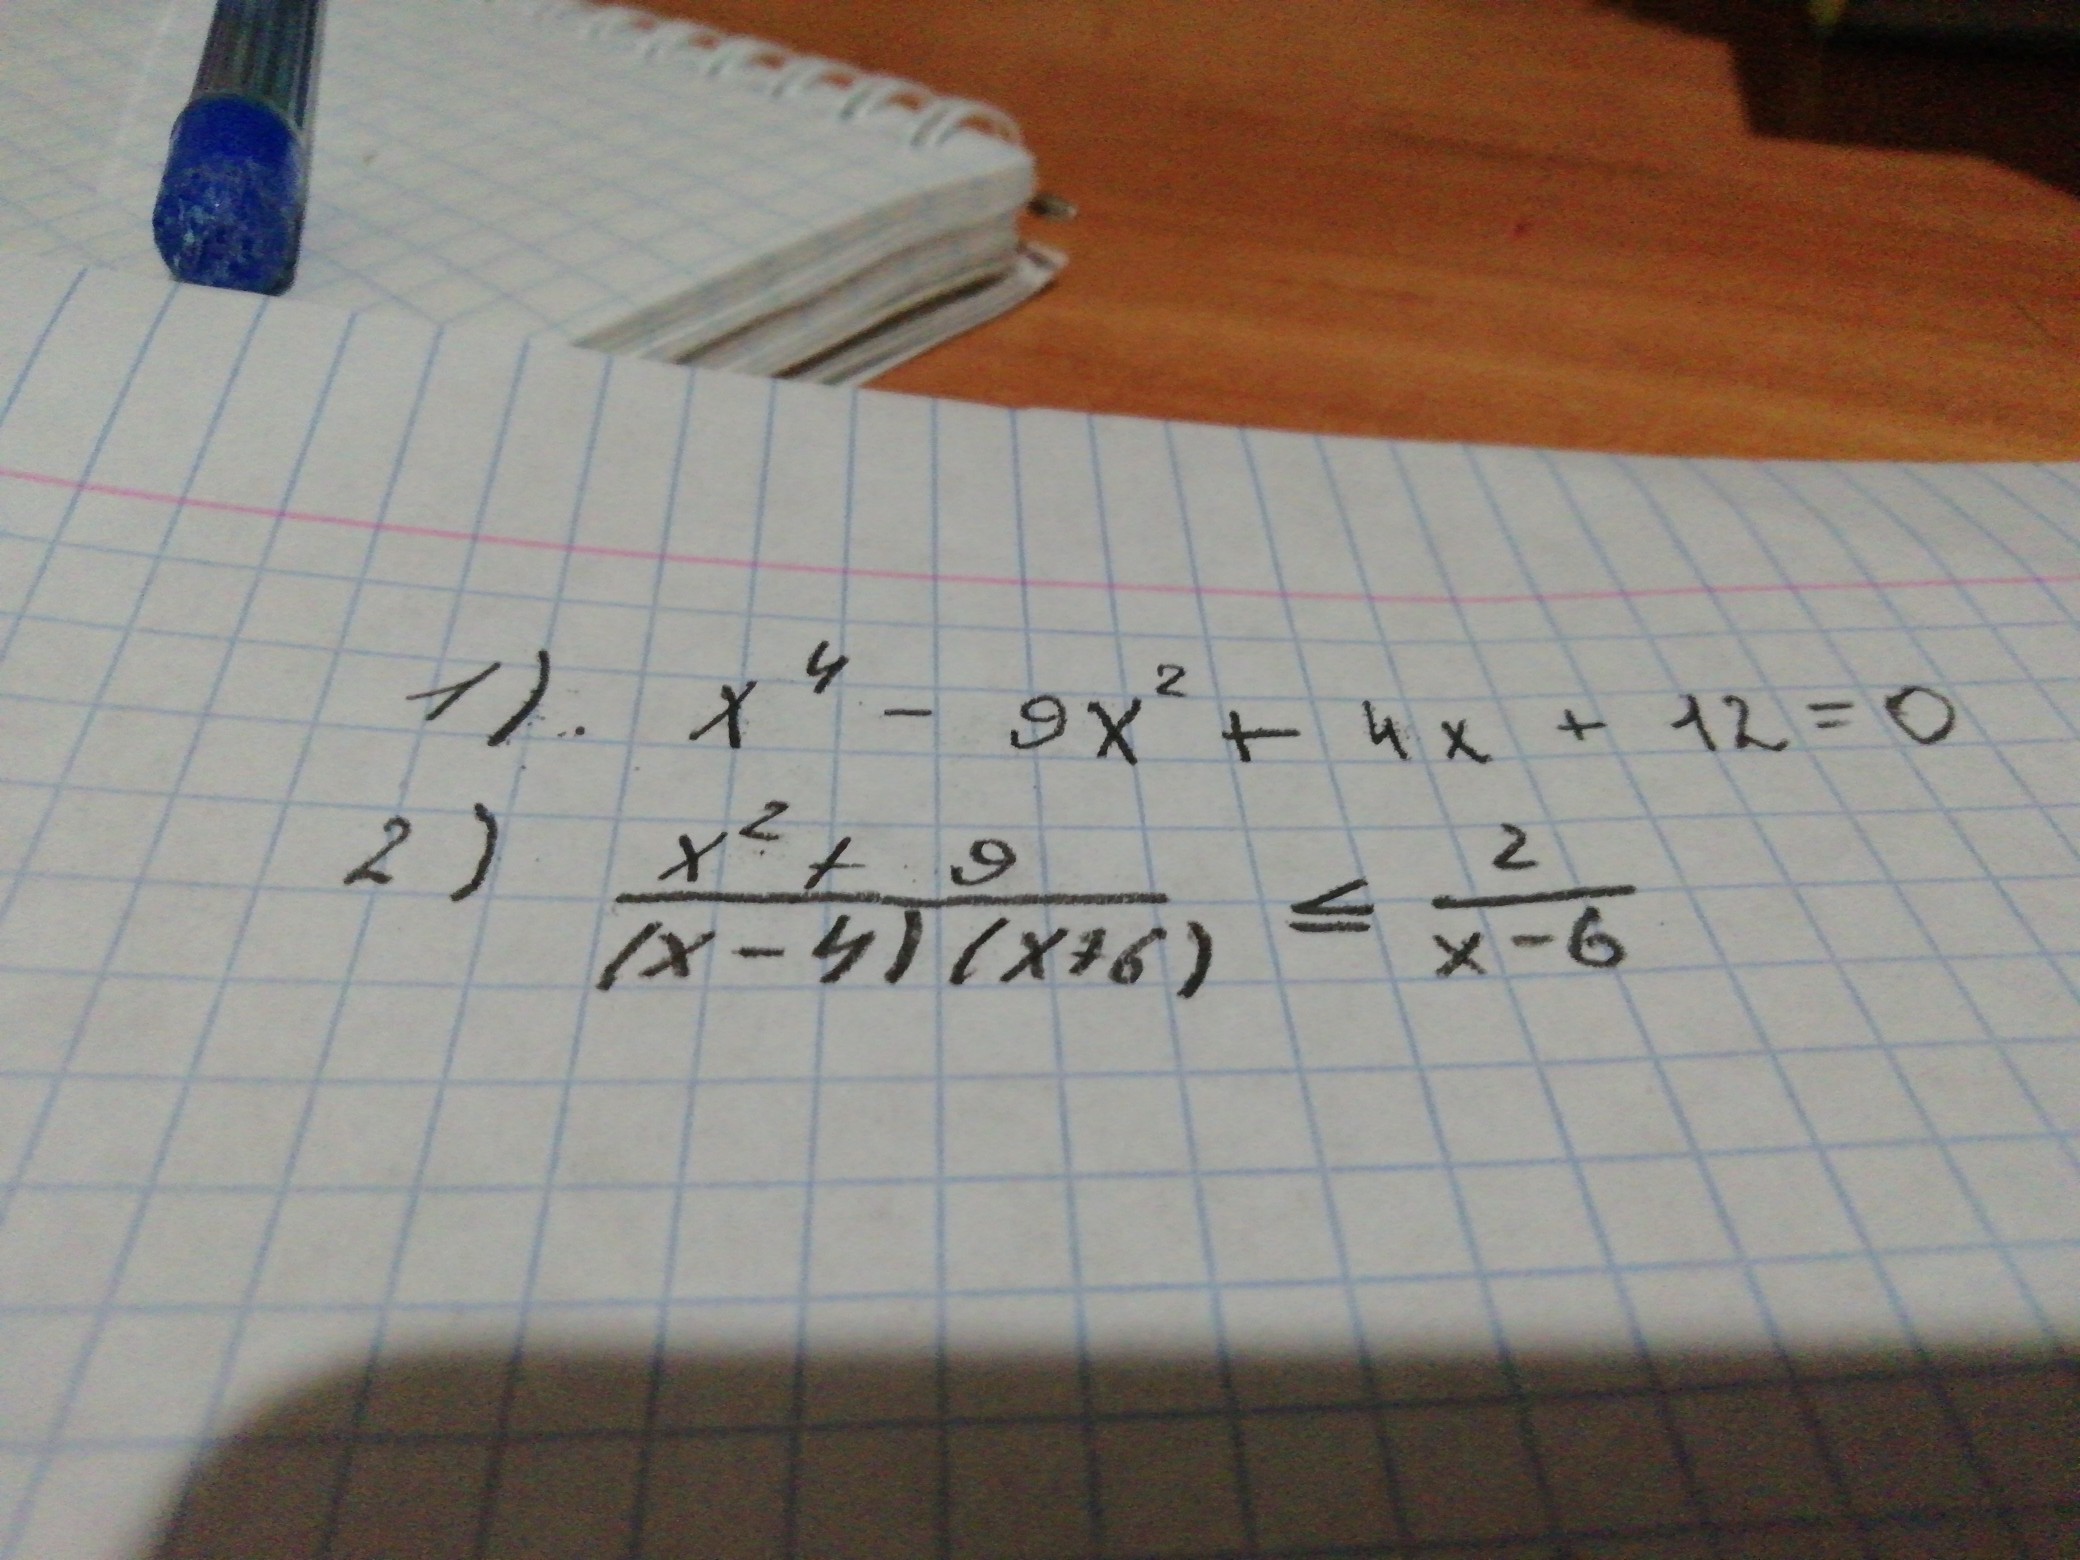 1). x⁴ - 9x² + 4x + 12 = 0
2) (x² + 9)/((x - 4)(x + 6)) ≤ 2/(x - 6)